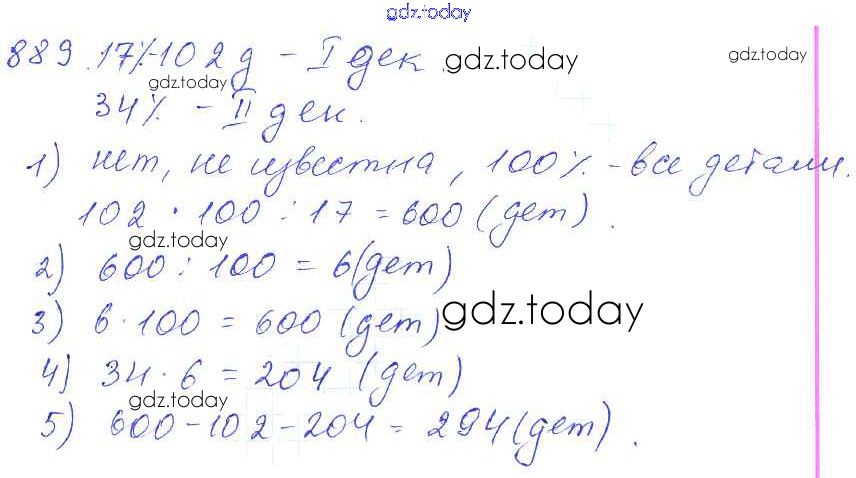 gdz.today
889. 17% - 102 д - I дек. gdz.today gdz.today
gdz.today
34% - II дек.
1) нет, не известна, 100% - все детали.
102 · 100 : 17 = 600 (дет).
gdz.today
2) 600 : 100 = 6 (дет)
3) 6 · 100 = 600 (дет) gdz.today
4) 34 · 6 = 204 (дет)
gdz.today
5) 600 - 102 - 204 = 294 (дет).